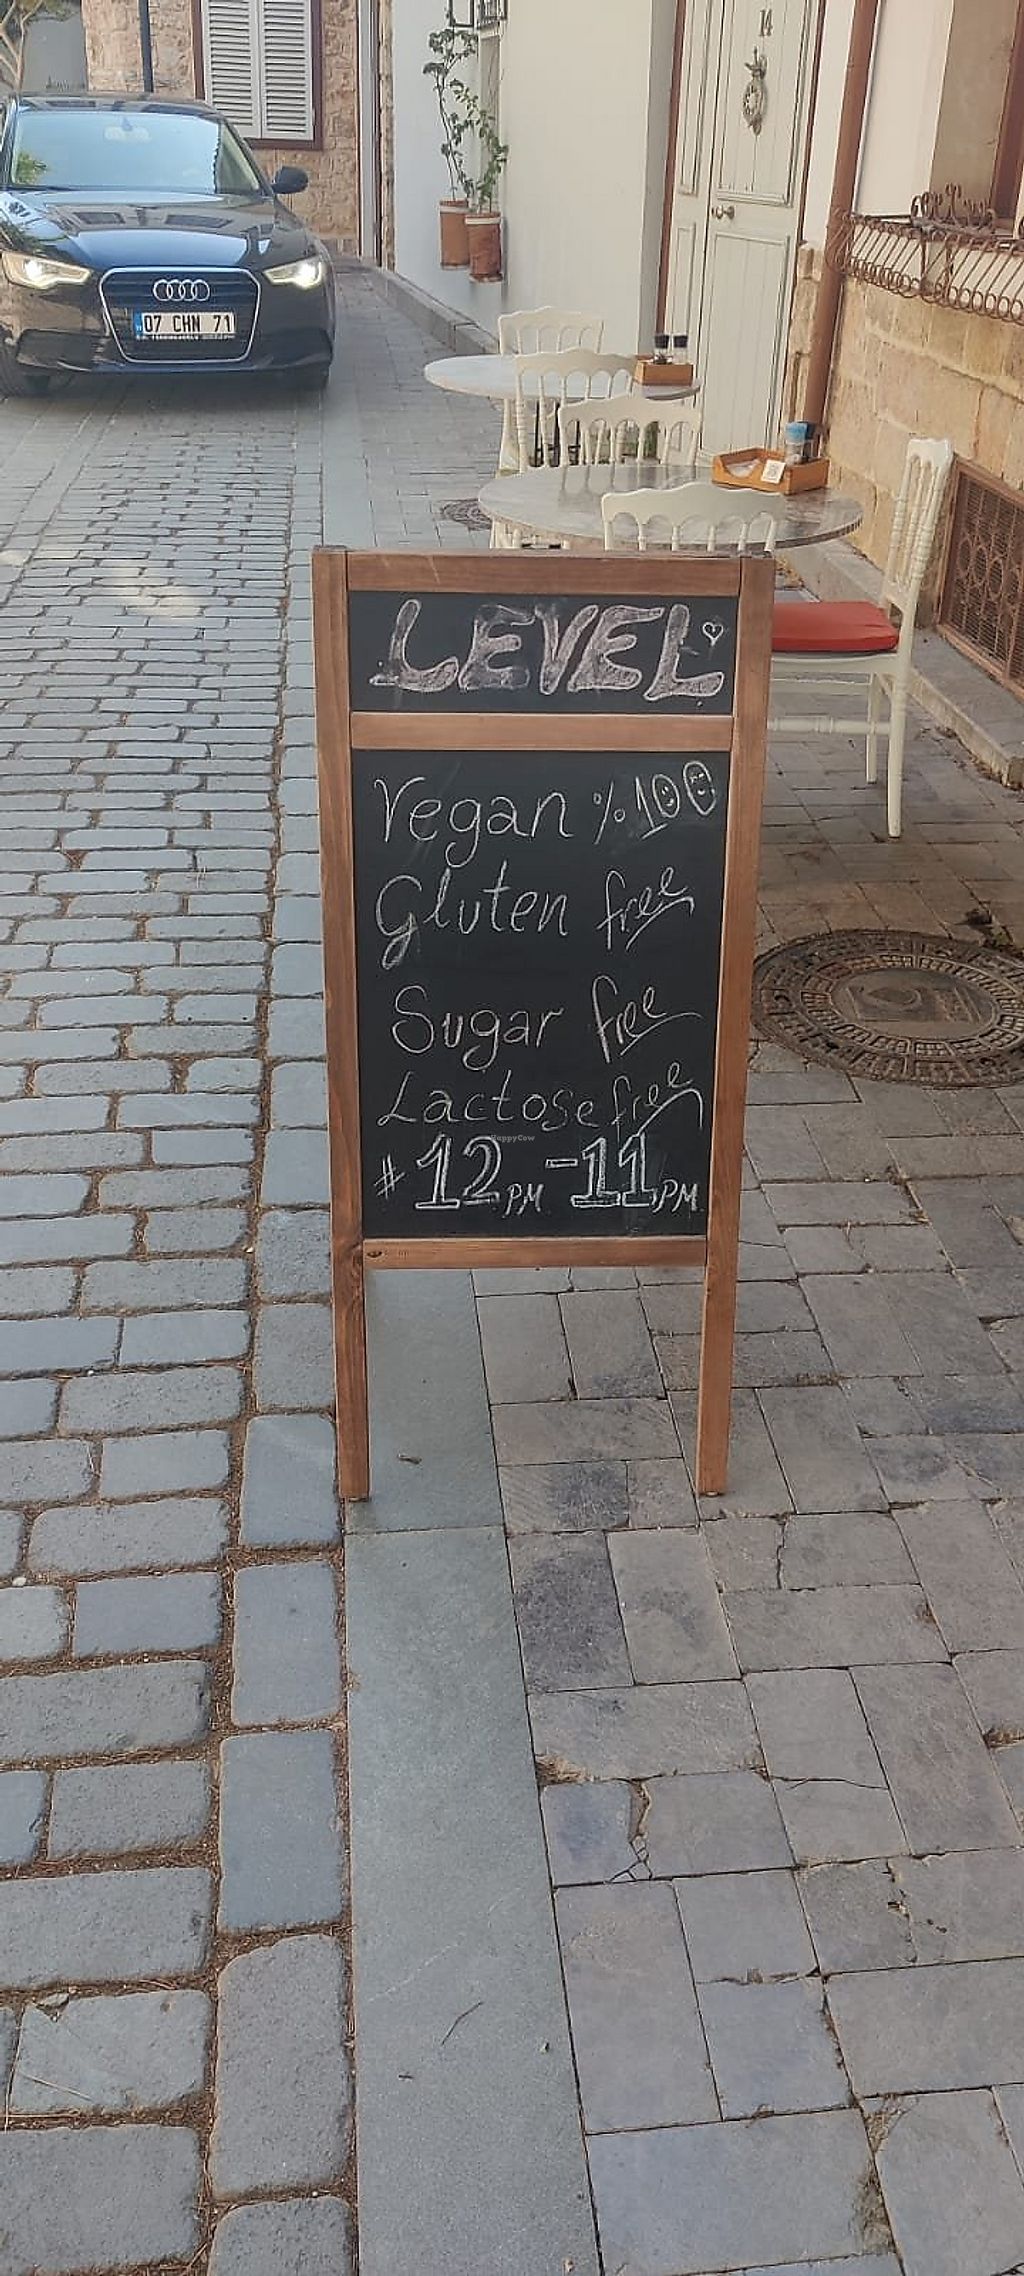 14
07 CHN 71
LEVEL
Vegan % 100
Gluten free
Sugar free
Lactose free
HappyCow
# 12 PM - 11 PM